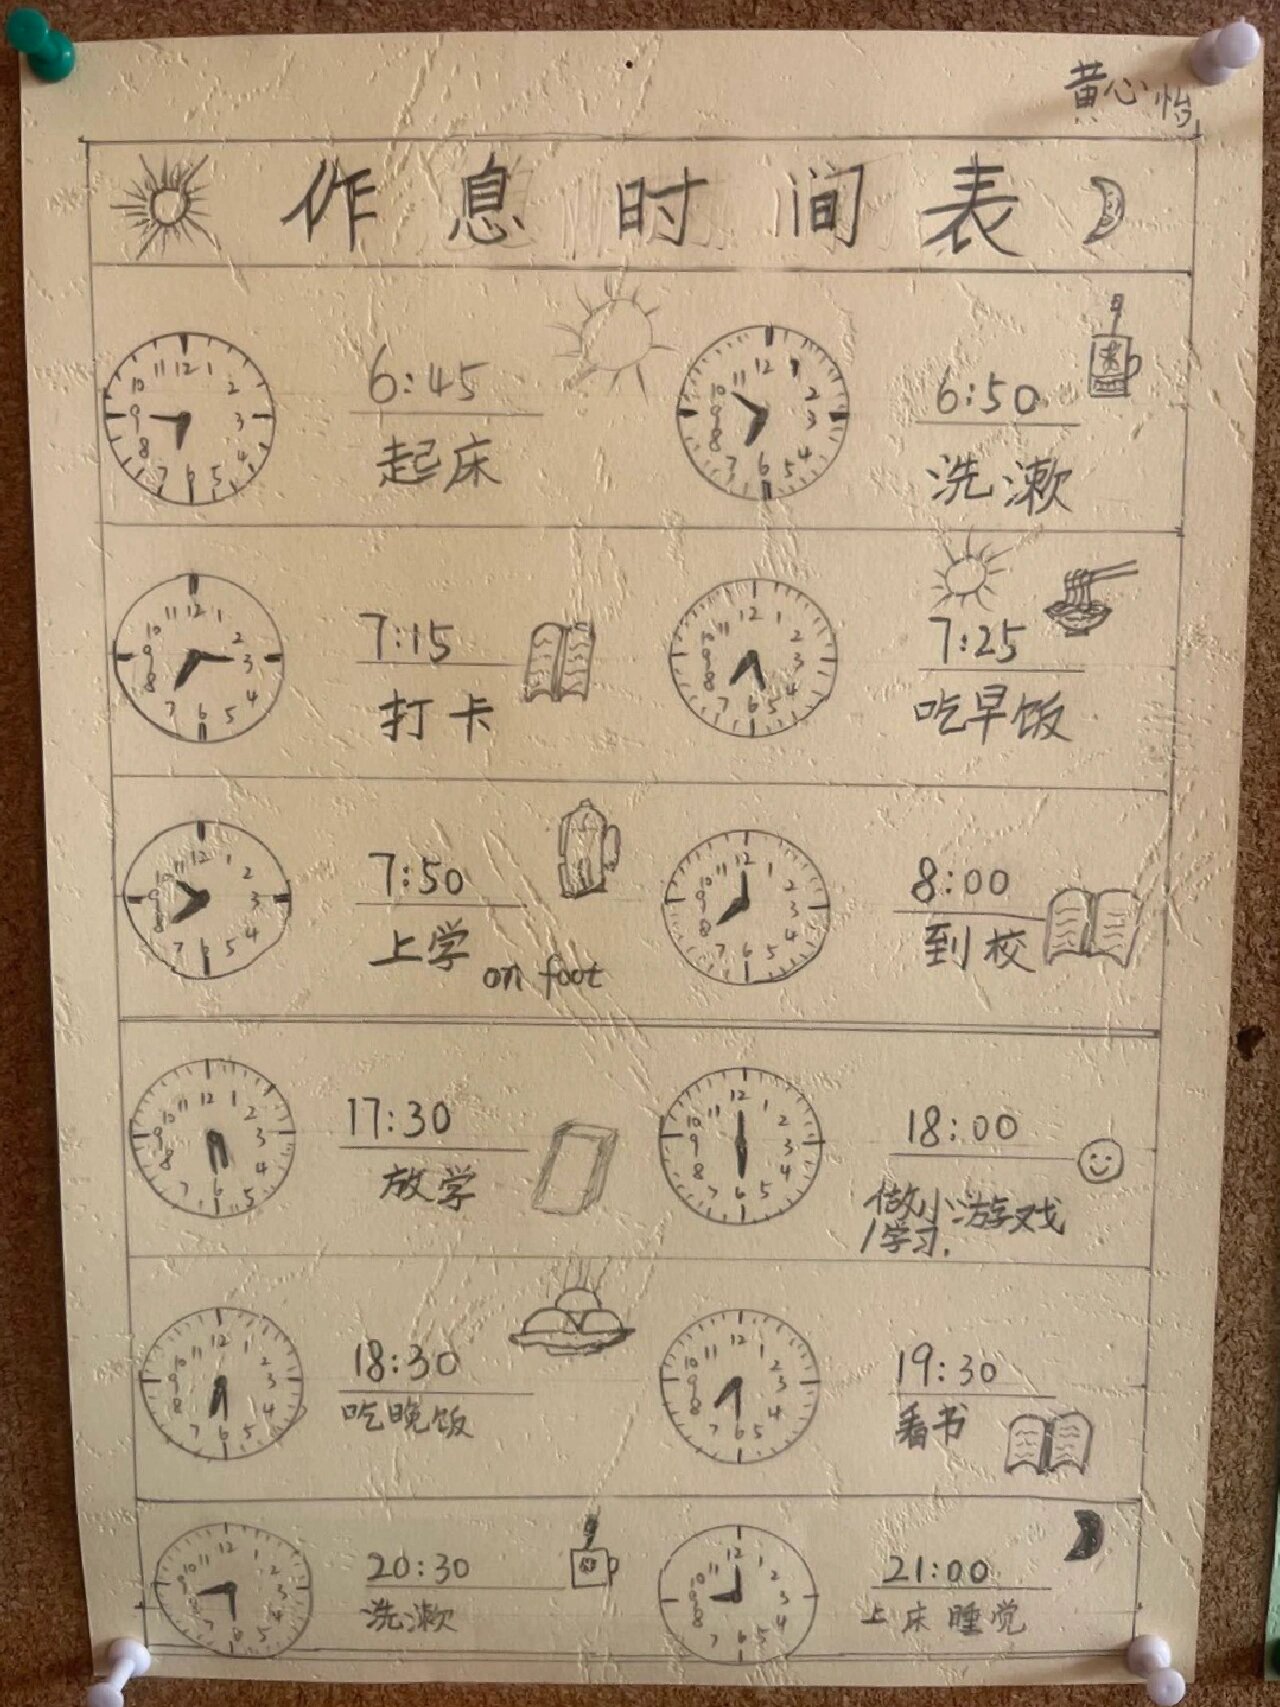 黄心怡
作息时间表
6:45
起床
6:50
洗漱
7:15
打卡
7:25
吃早饭
7:50
上学 on foot
8:00
到校
17:30
放学
18:00
做小游戏
/学习.
18:30
吃晚饭
19:30
看书
20:30
洗漱
21:00
上床睡觉